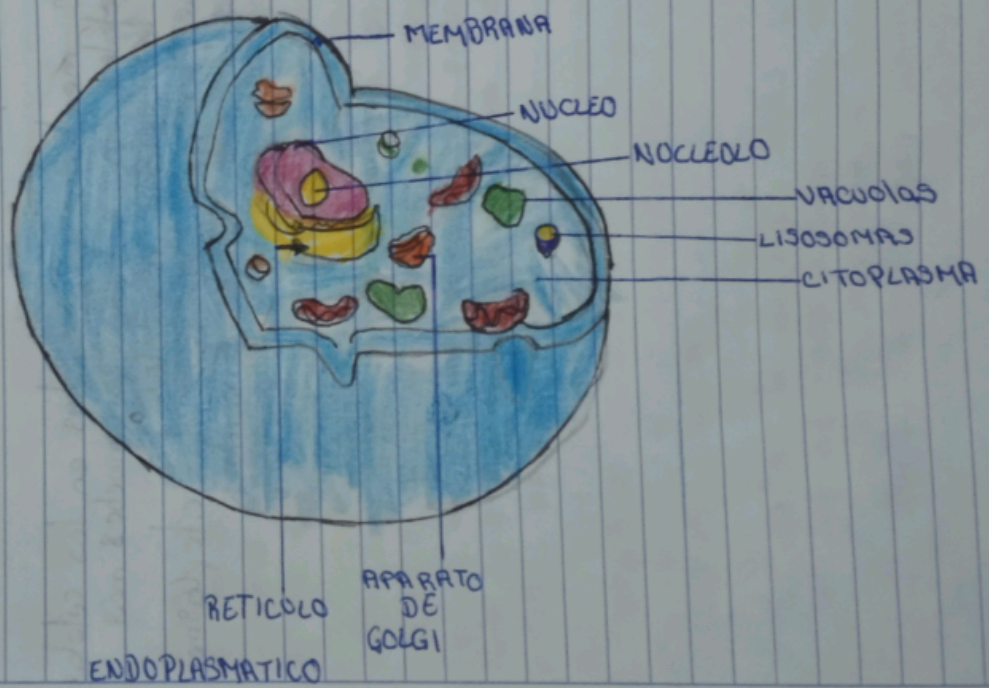 MEMBRANA
NUCLEO
NOCLEOLO
VACUOLAS
LISOSOMAS
CITOPLASMA
RETICOLO
ENDOPLASMATICO
APARATO
DE
GOLGI